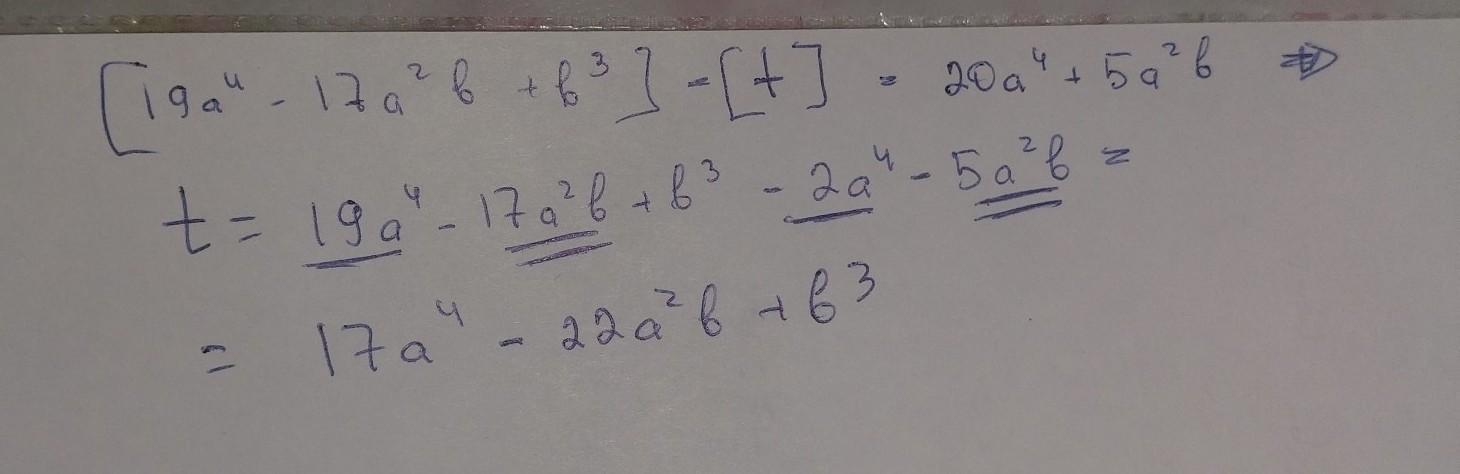 [19a⁴ - 17a²b + b³] - [t] = 20a⁴ + 5a²b ⇒
t = 19a⁴ - 17a²b + b³ - 2a⁴ - 5a²b =
= 17a⁴ - 22a²b + b³